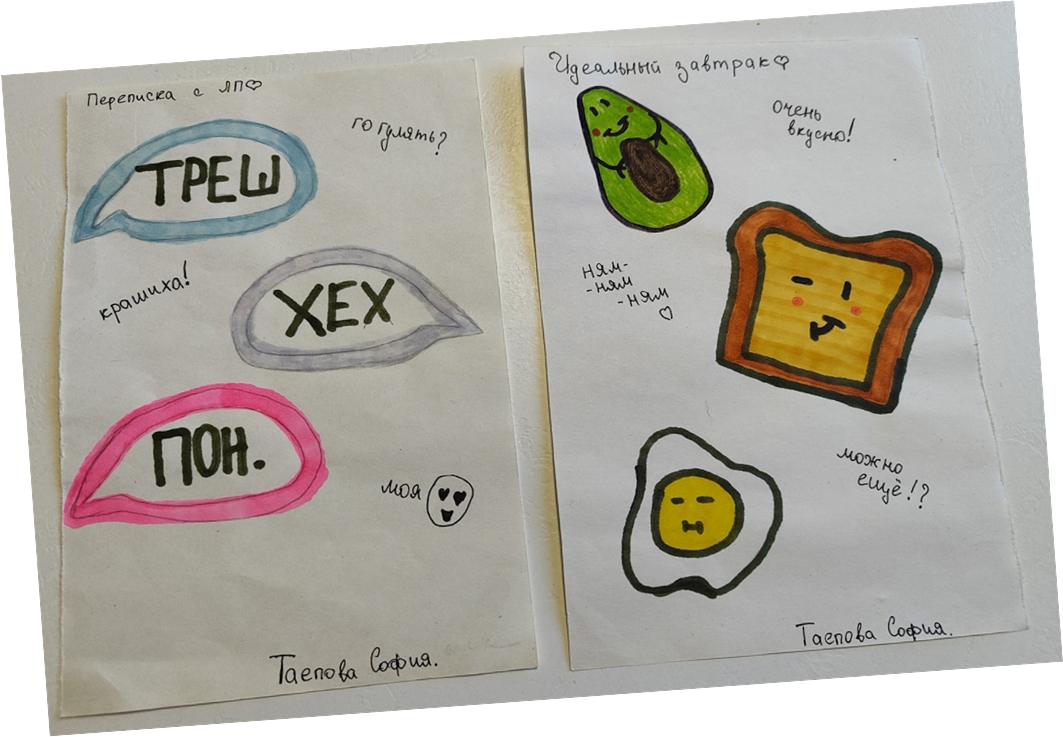 Переписка с ЛП♡
го гулять?
ТРЕШ
крашиха!
ХЕХ
ПОН.
моя
Таепова София.
Идеальный завтрак♡
очень
вкусно!
ням-
-ням
-ням
♡
можно
ещё!?
Таепова София.